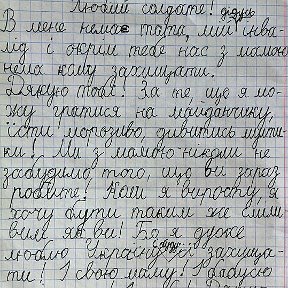 Любий солдате!
В мене немає тата, мій дідусь інва-
лід і окрім тебе нас з мамою
нема кому захищати.
Дякую тобі! За те, що я мо-
жу гратися на майданчику,
їсти морозиво, дивитись мульти-
ки! Ми з мамою ніколи не
забудимо того, що ви зараз
робите! Коли я виросту, я
хочу бути таким же сміли-
вим як ви! Бо я дуже
люблю Україну і буду її захища-
ти! І свою маму!